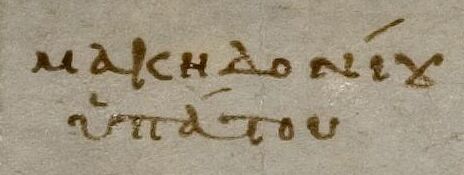 μακηδονίȣ
ὑπάτου